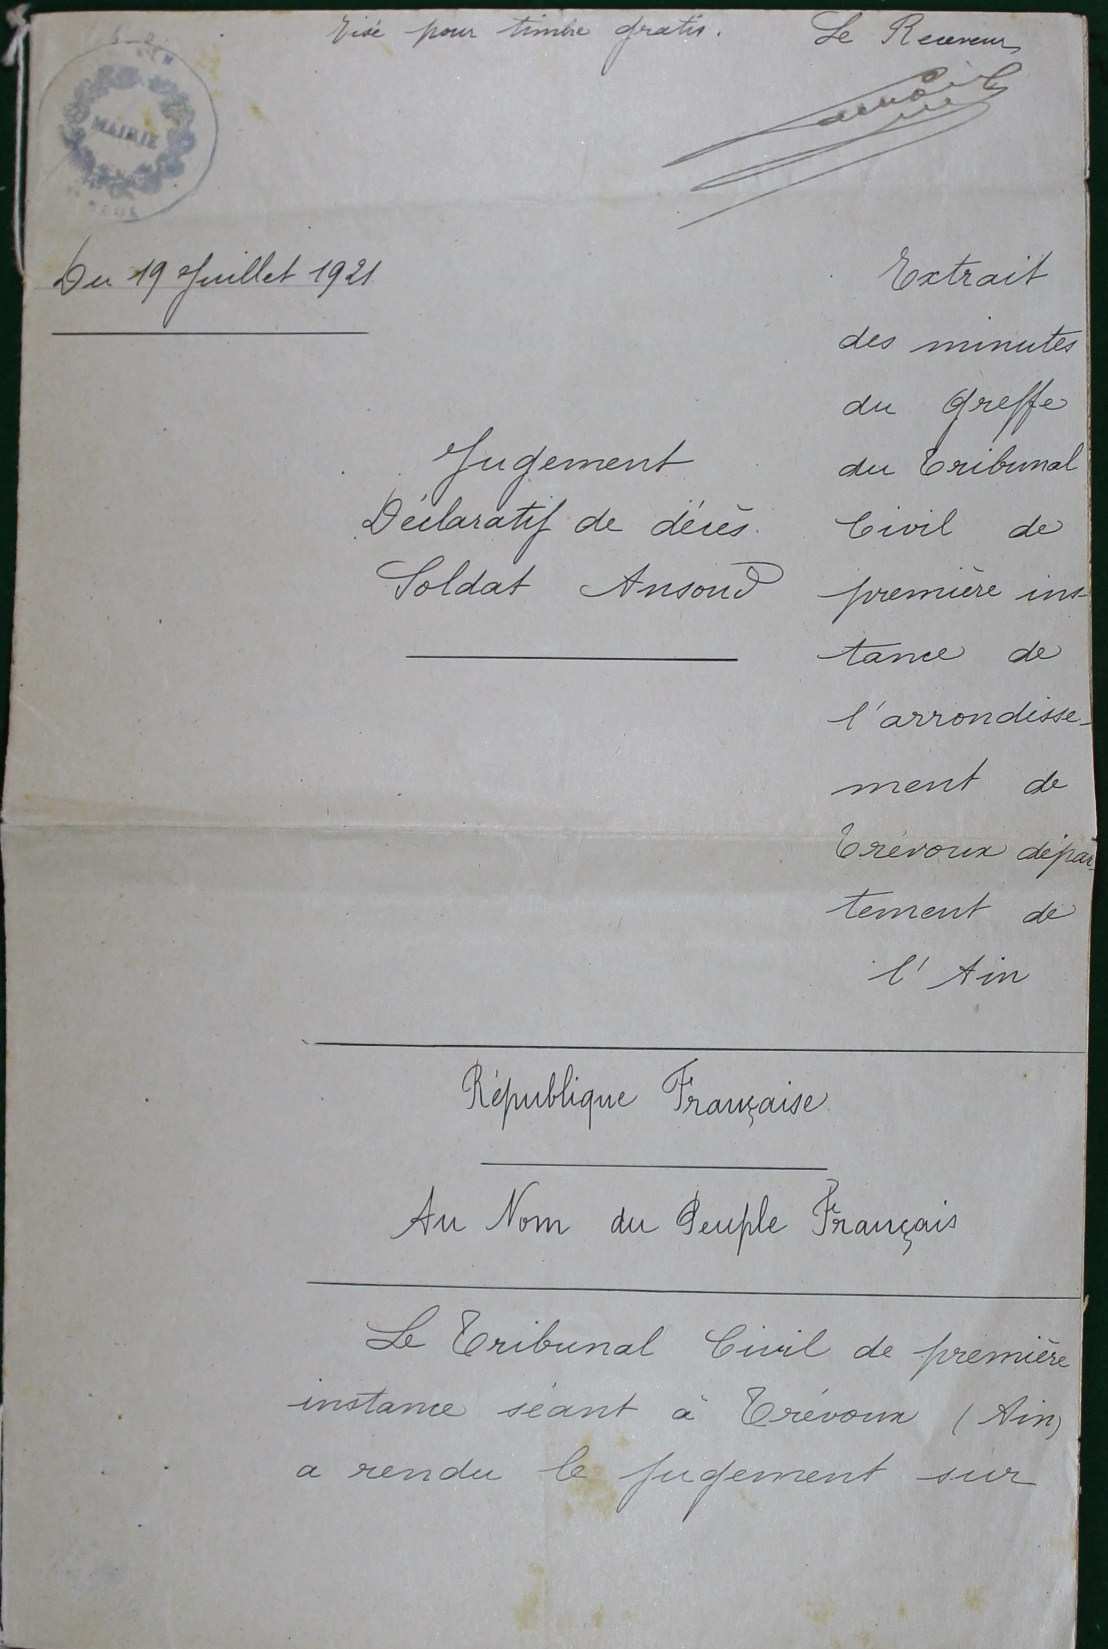 Visé pour timbre gratis. Le Receveur
MAIRIE
Du 19 Juillet 1921
Jugement
Déclaratif de décès
Soldat Ansoud
Extrait
des minutes
du Greffe
du Tribunal
Civil de
première ins-
tance de
l'arrondisse-
ment de
Trévoux dépar-
tement de
l'Ain
République Française
Au Nom du Peuple Français
Le Tribunal Civil de première
instance séant à Trévoux (Ain)
a rendu le jugement sur